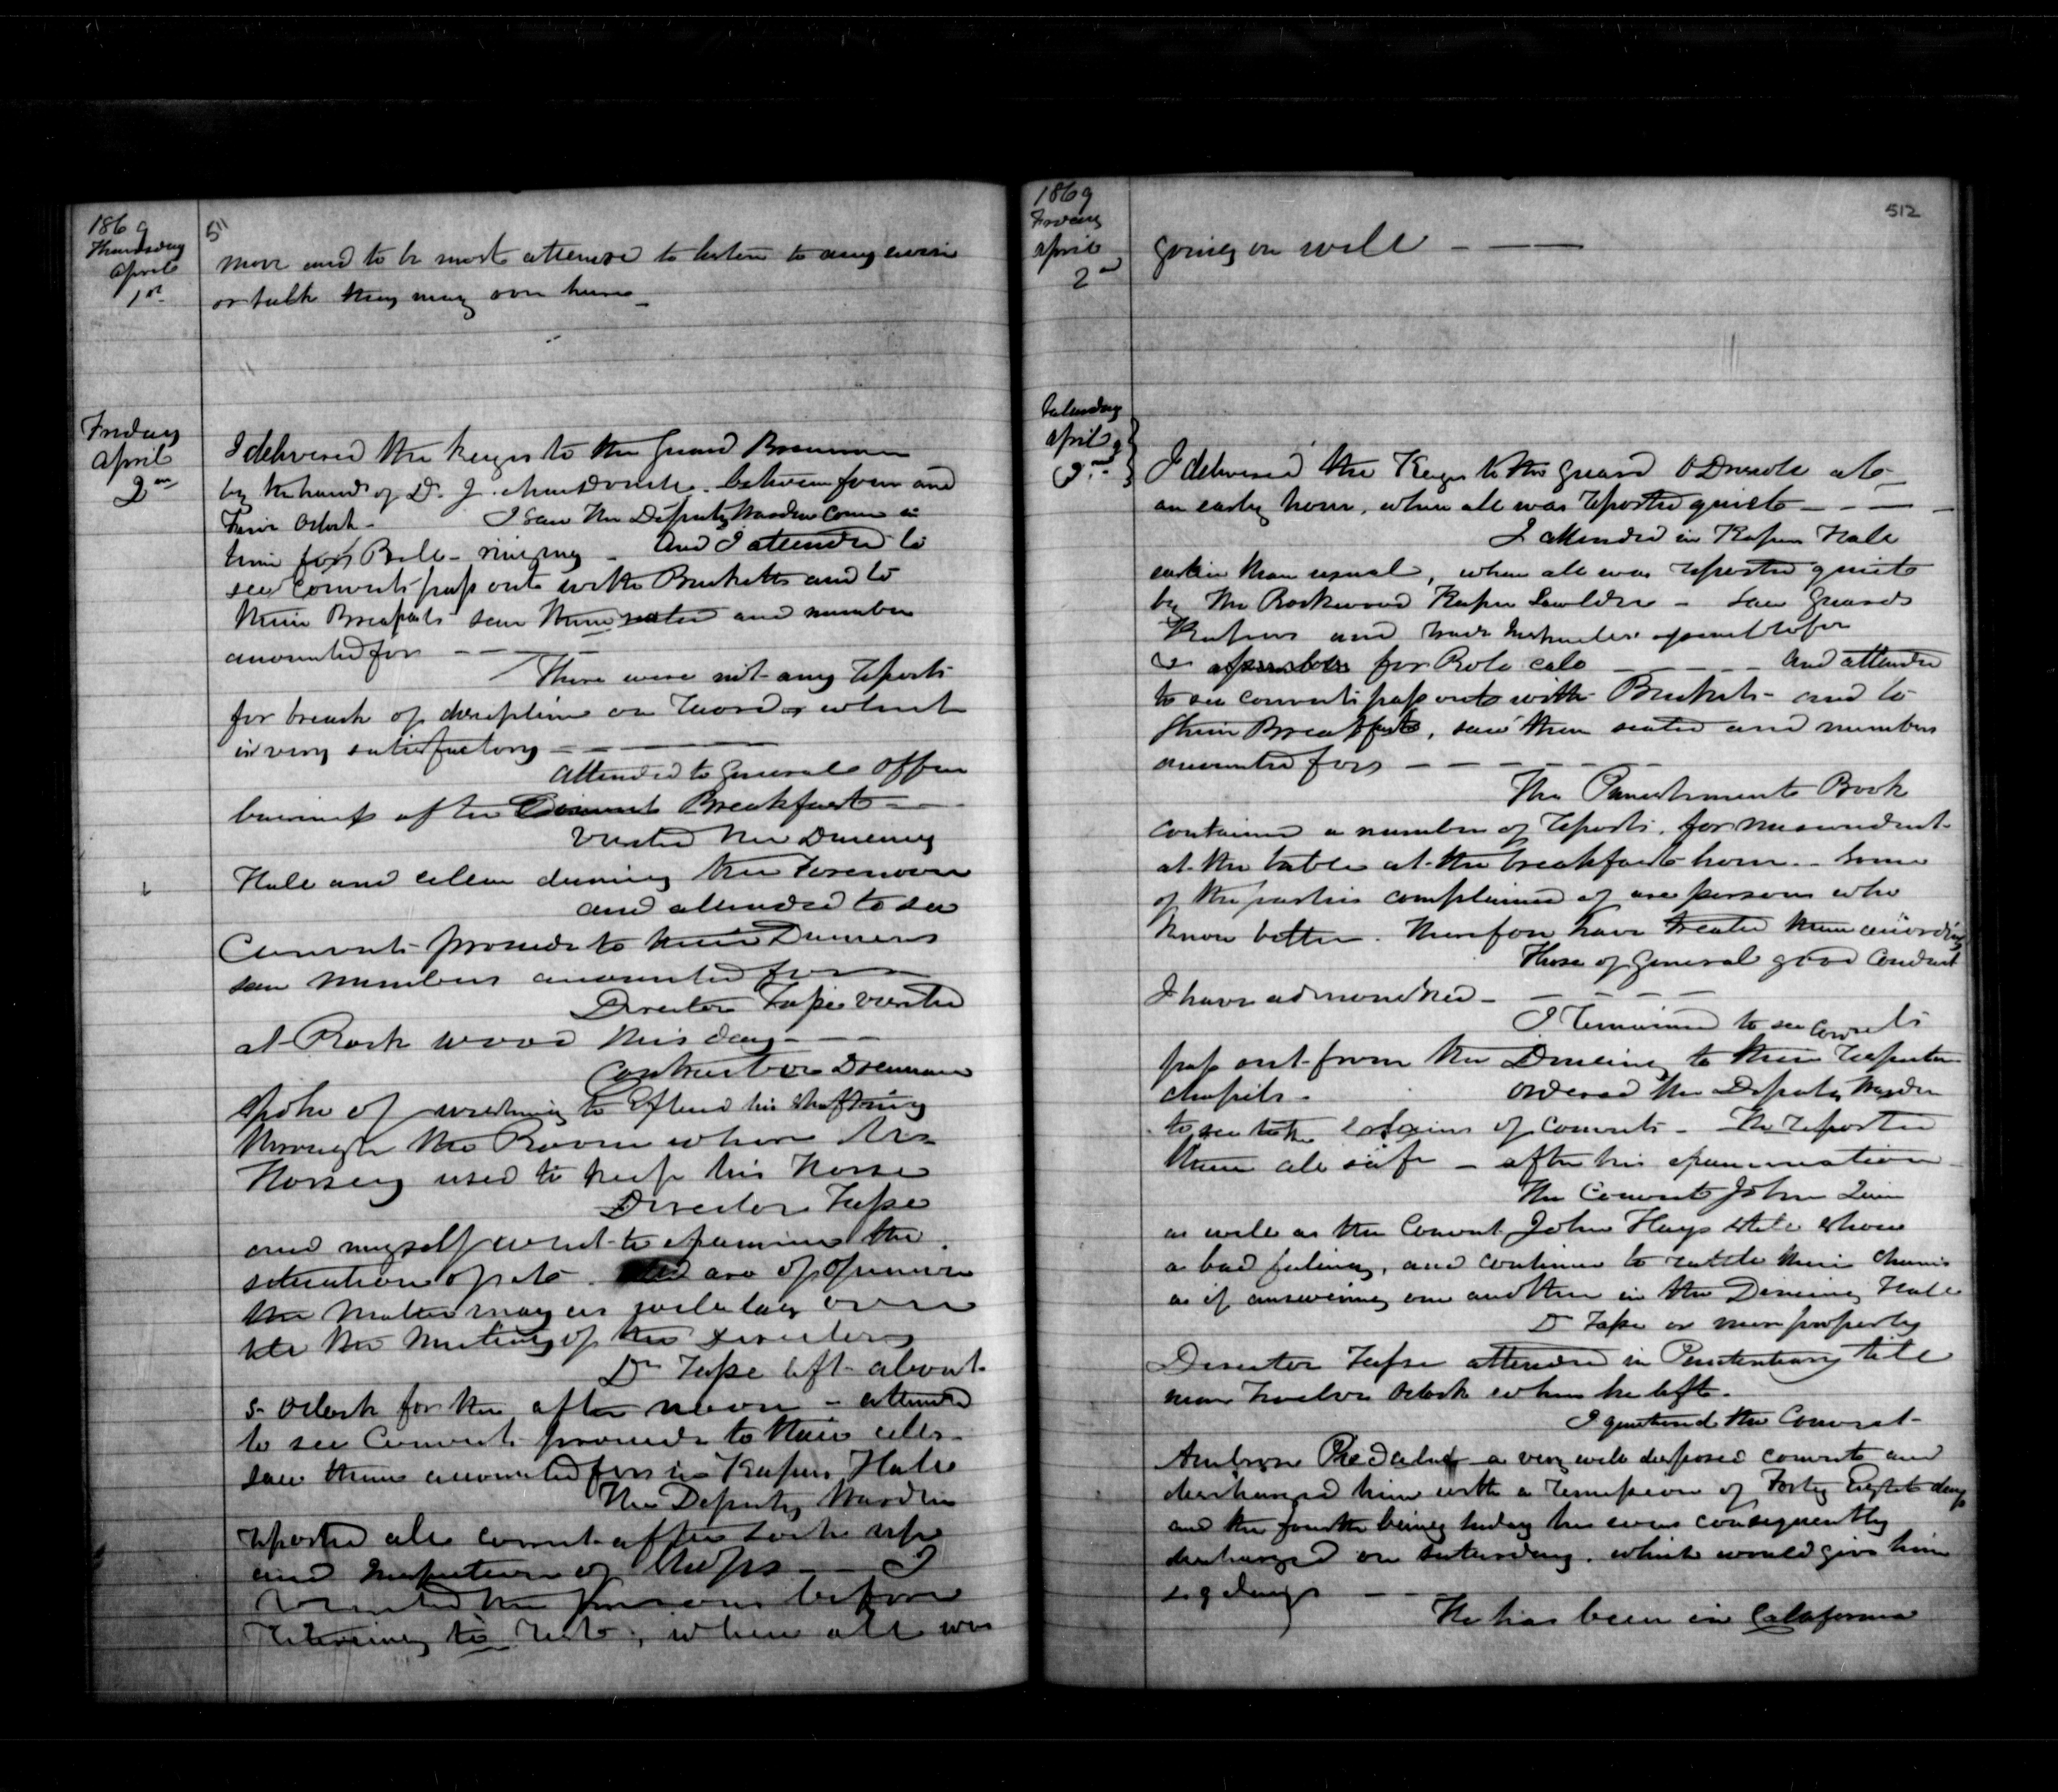 1869
Thursday
April
1st
511
move and to be most attentive to listen to any
or talk they may over hear
Friday
April
2nd
I delivered the keys to the Guard
by the hand of D. J. between four and
five oclock - I saw the Deputy Warden come in
time for Bell-ringing - And I attended to
see Convicts pass out with Buckets and to
their Breakfasts saw them seated and number
accounted for
There were not any reports
for breach of discipline on record which
is very satisfactory
Attended to general office
business after Convict Breakfast
Visited the Dining
Hall and during the forenoon
and attended to see
Convicts proceed to their Dinners
saw numbers accounted for
Director Tape visited
at Rock wood this day
Contractor Drennan
spoke of wishing to extend his shafting
through the Room where
Horsey used to keep his Horse
Director Tape
and myself went to examine the
situation of it. and are of opinion
the matter may as well lay over
till the meeting of the Directors
Dr Tape left about
5 oclock for the after noon - attended
to see Convicts proceed to their cells
saw them accounted for in Keepers Hall
The Deputy Warden
reported all correct after lock up
and Inspection of Shops - I
visited the prisons before
retiring to rest, when all was
1869
Friday
April
2nd
512
going on well
Saturday
April
3rd
I delivered the Keys to the guard O Driscole at
an early hour, when all was reported quiet
I attended in Keepers Hall
earlier than usual, when all was reported quiet
by the Rockwood Keeper - saw Guards
Keepers and Trade Instructors
assemble for Role call And attended
to see convicts pass out with Buckets - and to
their Breakfasts, saw them seated and numbers
accounted for
The Punishment Book
contained a number of reports, for misconduct
at the table at the breakfast hour. Some
of the parties complained of are persons who
know better. Therefore have treated them according
Those of general good conduct
I have admonished
I remained to see Convicts
pass out from the Dining to their respective
chapels. Ordered the Deputy Warden
to see to the chains of convicts - He reported
them all safe - after his examination
The Convict John Quin
as well as the Convict John Hays still show
a bad feeling, and continue to rattle their chains
as if answering one another in the Dining Hall
D Tape or more properly
Director Tape attended in Penitentiary till
near twelve oclock when he left.
I questioned the Convict
Ambrose a very well disposed convict and
discharged him with a remission of Forty Eight days
and the fourth being Sunday he was consequently
discharged on Saturday. which would give him
days
He has been in Calafornia